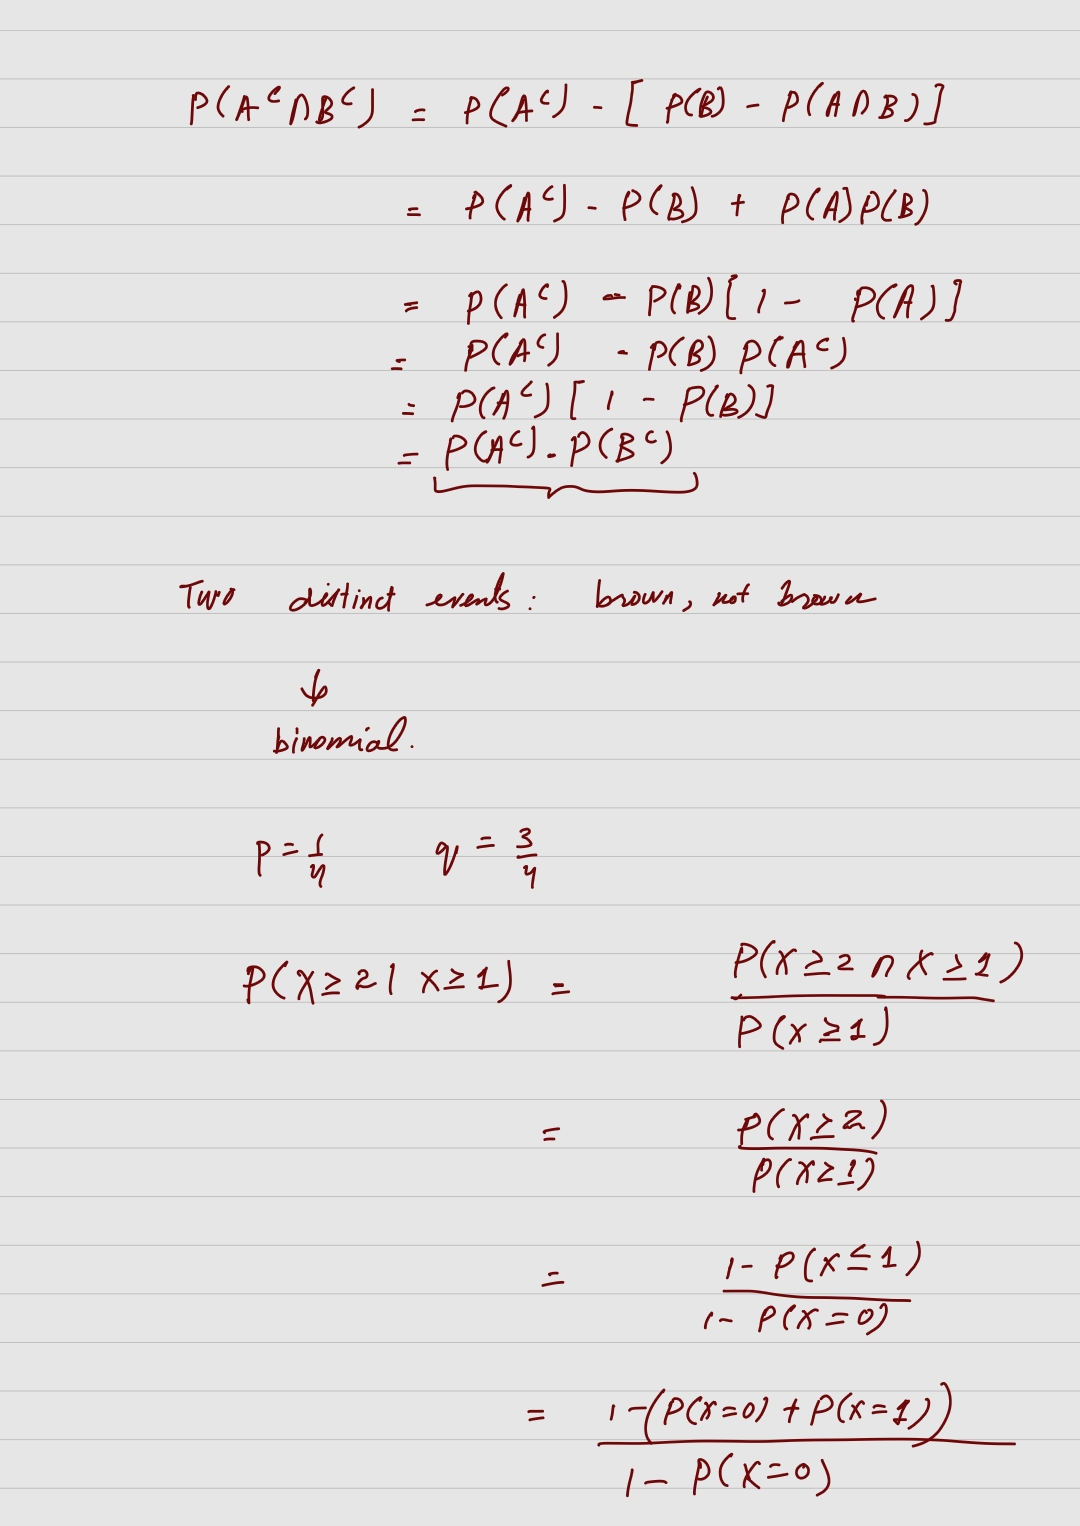 P(A^c ∩ B^c) = P(A^c) - [ P(B) - P(A ∩ B) ]
= P(A^c) - P(B) + P(A)P(B)
= P(A^c) - P(B)[ 1 - P(A) ]
= P(A^c) - P(B) P(A^c)
= P(A^c) [ 1 - P(B)]
= P(A^c) . P(B^c)
Two distinct events: brown, not brown
↓
binomial.
p = 1/4 q = 3/4
P(X ≥ 2 | X ≥ 1) = P(X ≥ 2 ∩ X ≥ 1) / P(X ≥ 1)
= P(X ≥ 2) / P(X ≥ 1)
= 1 - P(X ≤ 1) / 1 - P(X = 0)
= 1 - (P(X=0) + P(X=1)) / 1 - P(X=0)